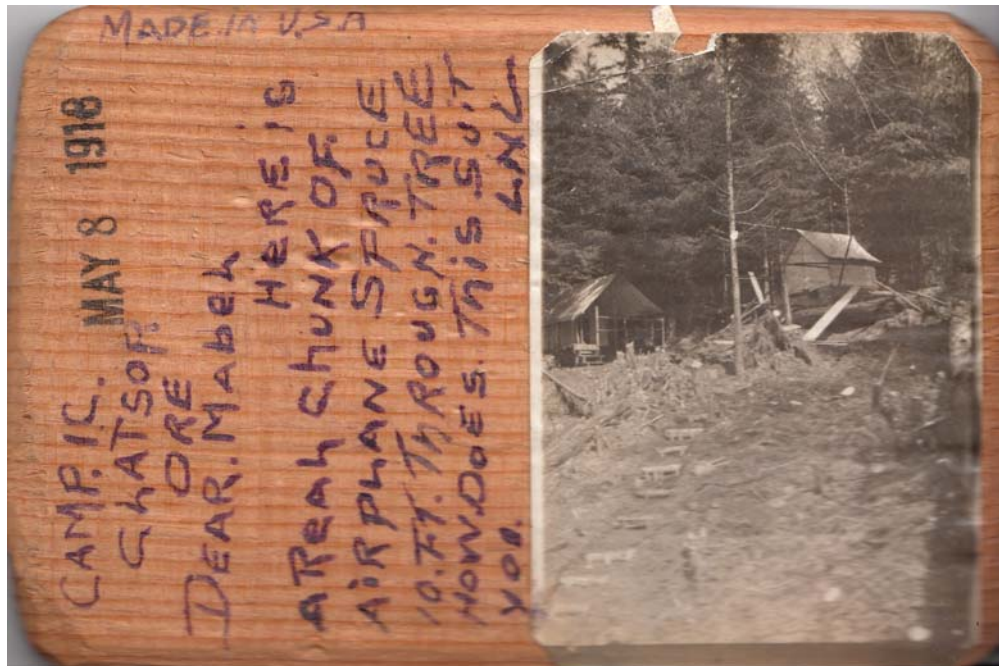 MADE.IN U.S.A
CAMP. 1C.
CLATSOP.
MAY 8 1918
ORE
DEAR. MabeL
HERE iS
A ReaL ChUNK OF.
AiRPLANE SPRUCE
10. FT. ThROUGh. TREE
HOW. DOES. ThiS SUiT
YOU.